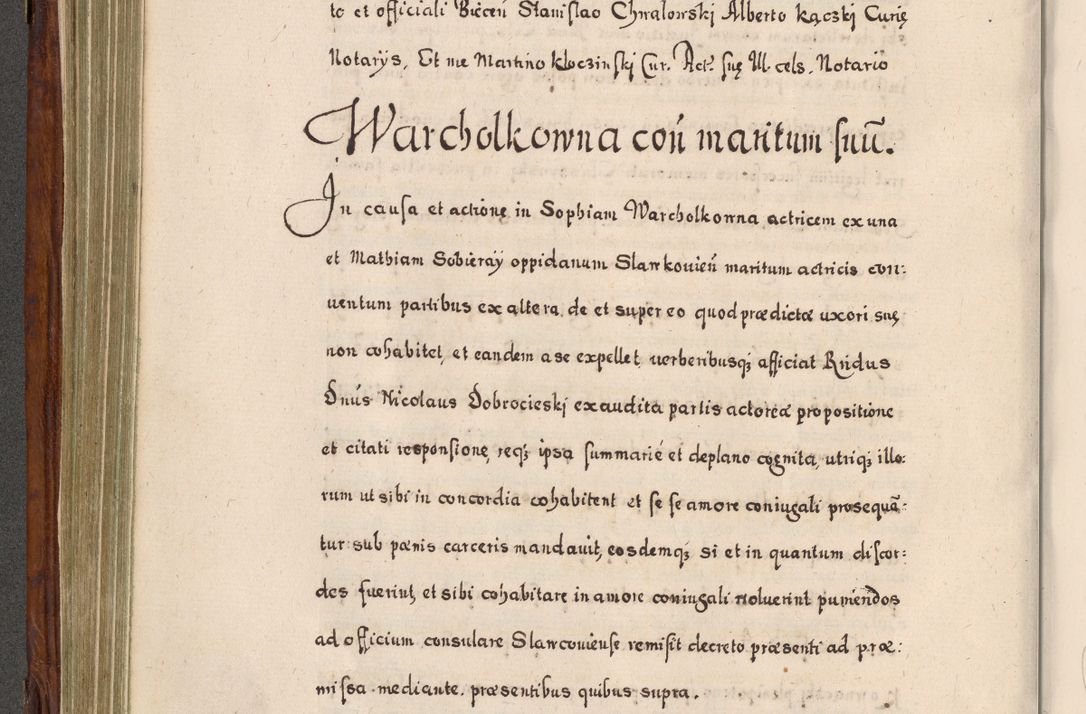 to et officiali Biecen̄ Stanislao Chwalowskj Alberto kączkj Curię
Notarÿs, Et me Martino kloczinskj Cur. Act. suę Ill cels. Notario
Warcholkowna con̄ maritum suū.
In causa et actione in Sophiam Warcholkowna actricem ex una
et Mathiam Sobieraÿ oppidanum Slawkouien̄ maritum actricis con:
uentum partibus ex altera, de et super eo quod prædictæ uxori suę
non cohabitet, et eandem a se expellet, uerberibusq; afficiat Rndus
Dnūs Nicolaus Dobrocieskj exaudita partis actoreæ propositione
et citati responsione, req; ipsa summarié et deplano cognita, utriq; illo:
rum ut sibi in concordia cohabitent et se se amore coniugali prosequā:
tur sub pœnis carceris mandauit, eosdemq; si et in quantum discor:
des fuerint, et sibi cohabitare in amore coniugali noluerint puniendos
ad officium consulare Slawcouiense remisit decreto præsenti ad præ:
missa mediante. præsentibus quibus supra.